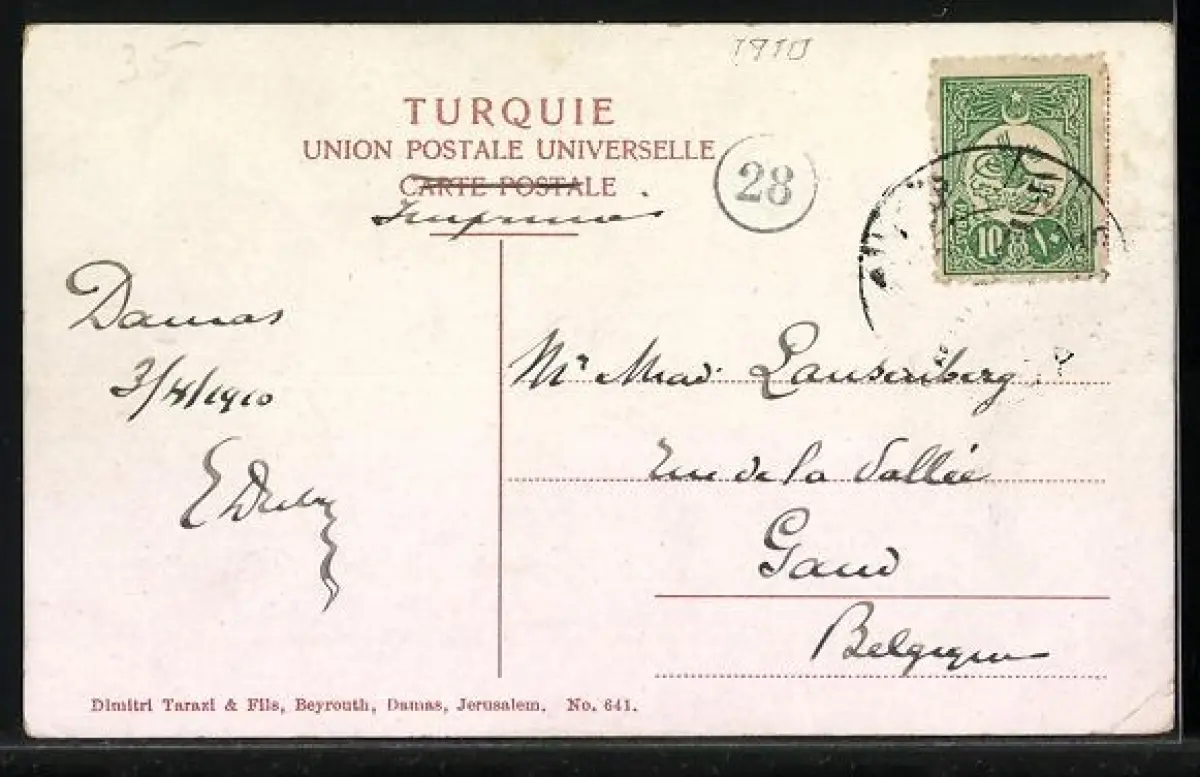 35
1910
TURQUIE
UNION POSTALE UNIVERSELLE
CARTE POSTALE
Imprimés
28
10 ١٠
Damas
3/4/1910
Mr & Mad. Lanseriberg
Rue de la Vallée
Gand
Belgique
Dimitri Tarazi & Fils, Beyrouth, Damas, Jerusalem. No. 641.